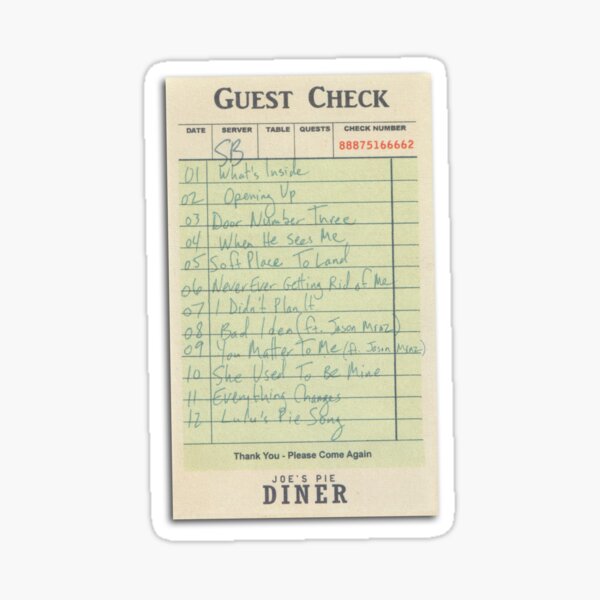 GUEST CHECK
DATE SERVER TABLE QUESTS CHECK NUMBER
SB 88875166662
01 What's Inside
02 Opening Up
03 Door Number Three
04 When He Sees Me
05 Soft Place To Land
06 Never Ever Getting Rid of Me
07 I Didn't Plan It
08 Bad Idea (ft. Jason Mraz)
09 You Matter To Me (ft. Jason Mraz)
10 She Used To Be Mine
11 Everything Changes
12 Lulu's Pie Song
Thank You - Please Come Again
JOE'S PIE
DINER